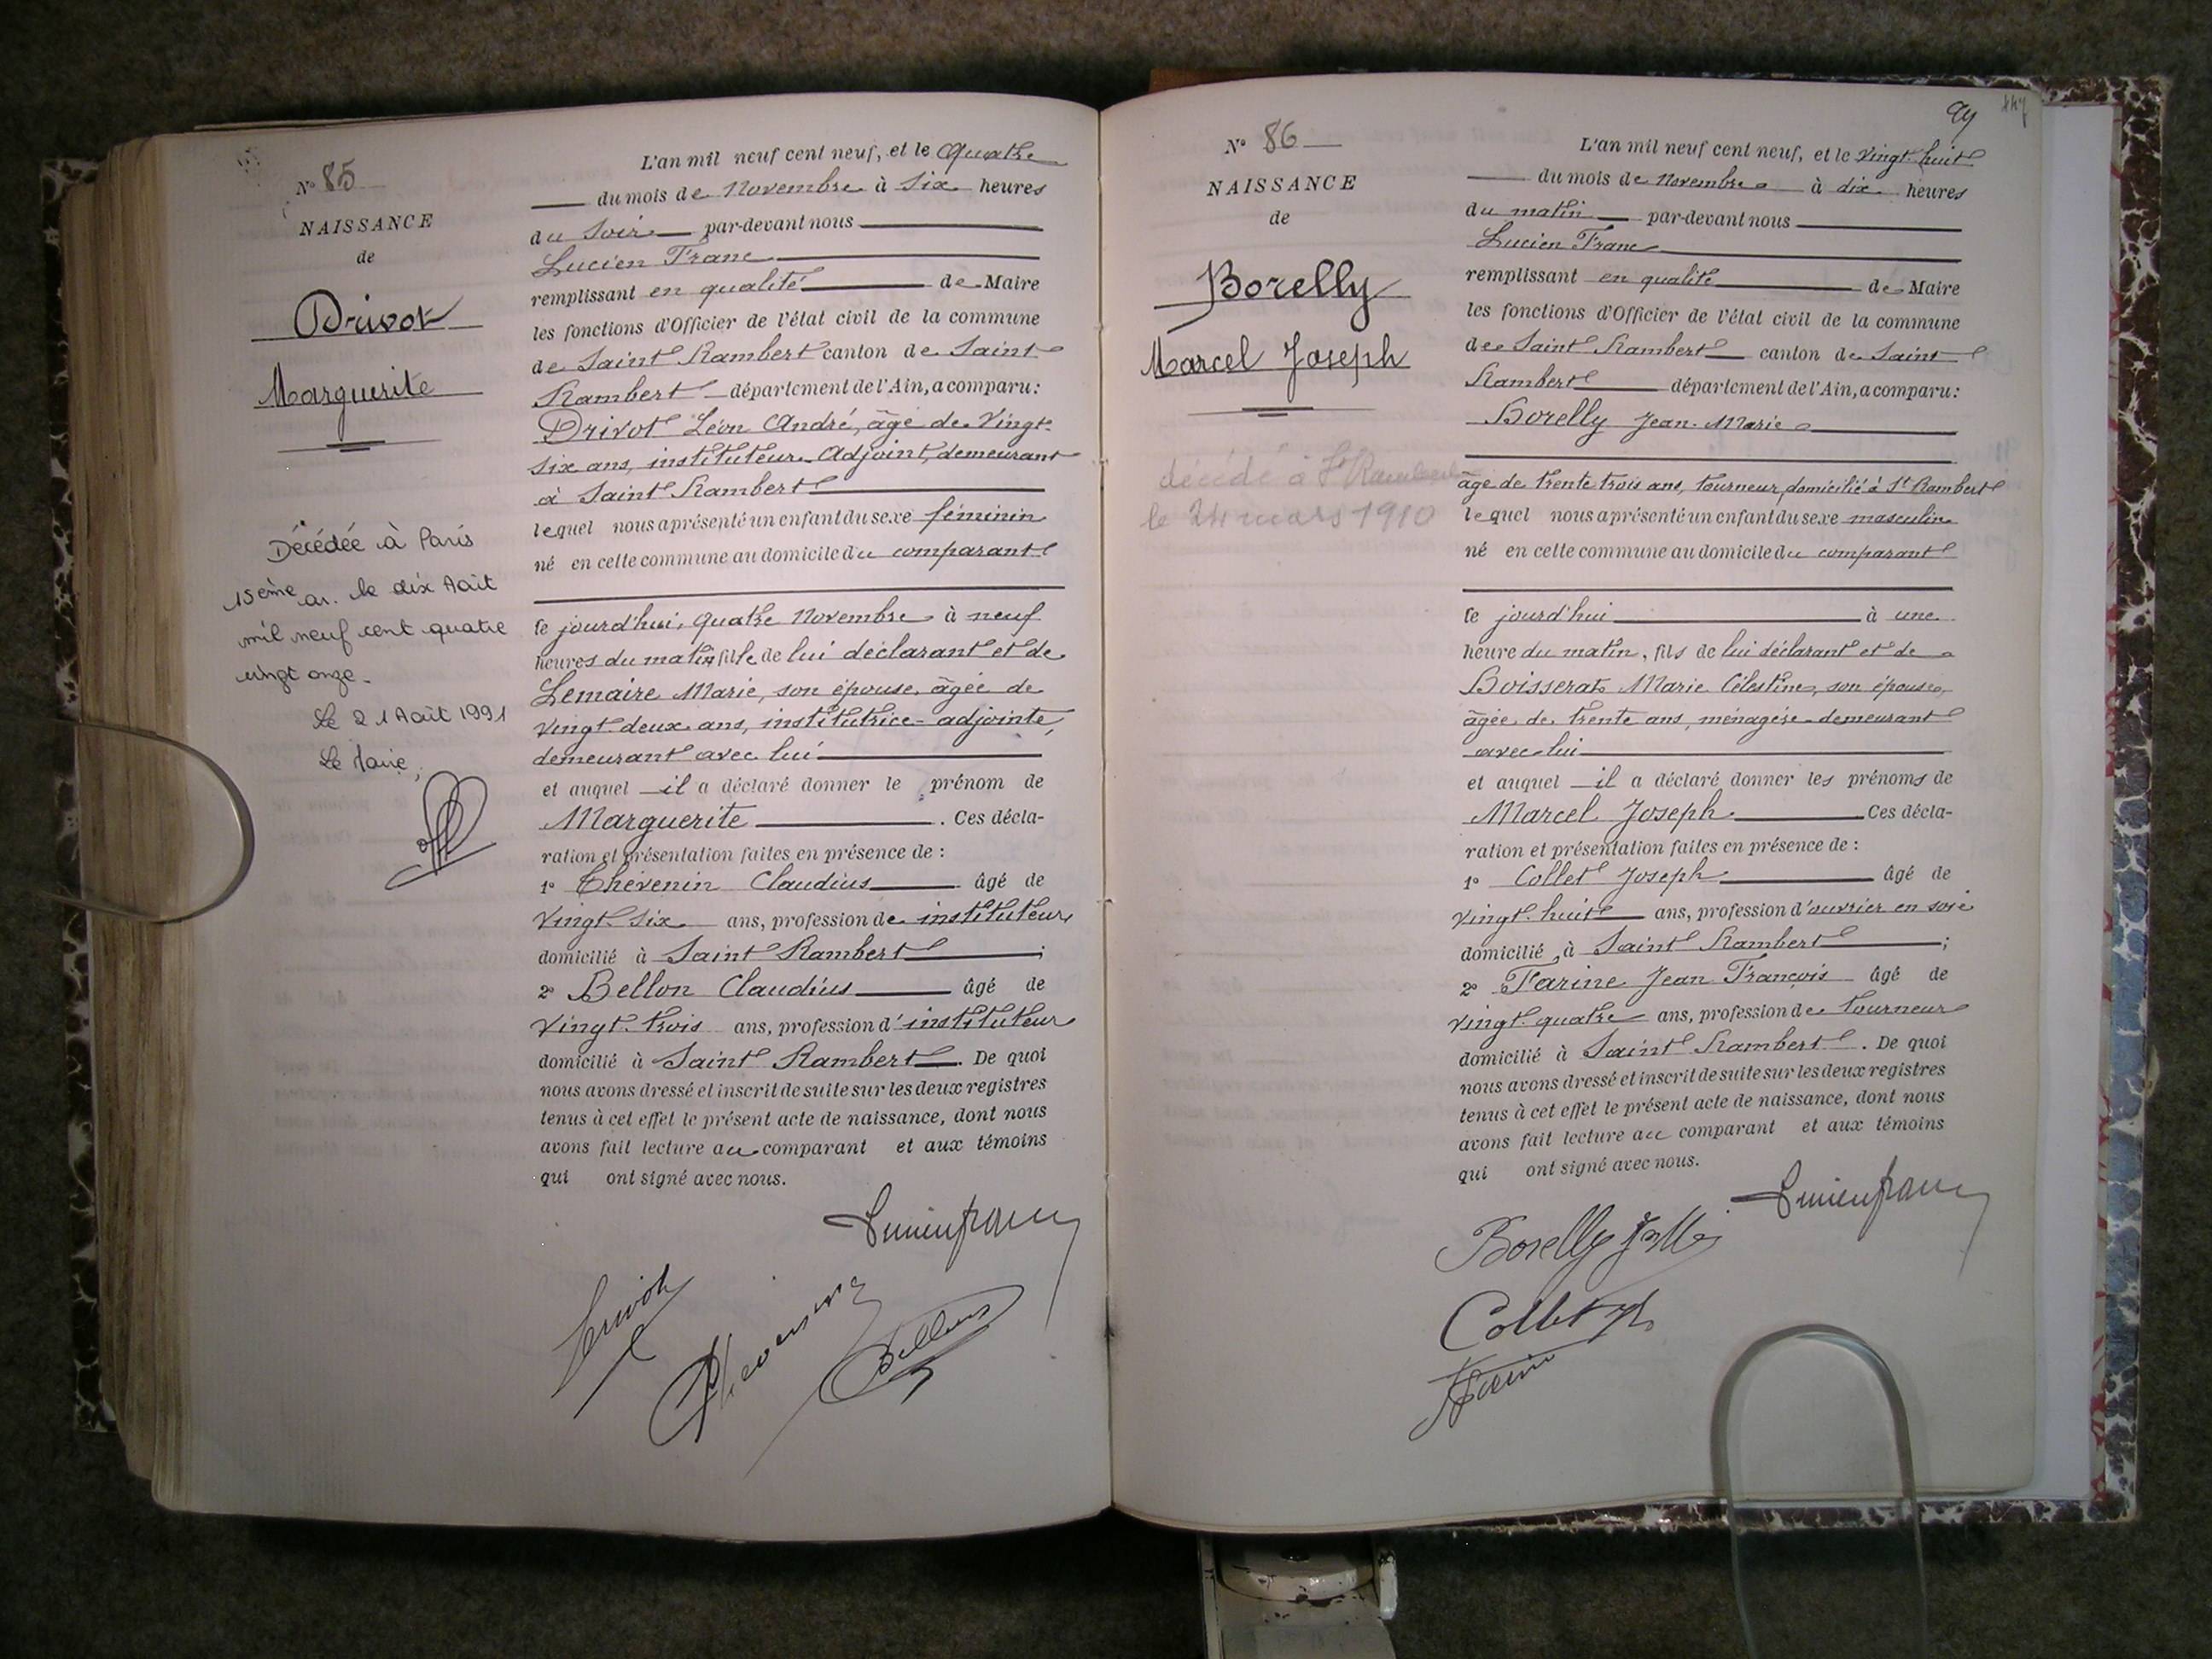 N° 85
NAISSANCE
de
Drivot
Marguerite
Décédée à Paris
15ème ar. le dix Août
mil neuf cent quatre
vingt onze.
Le 21 Août 1991
Le Maire,
L'an mil neuf cent neuf, et le Quatre
du mois de Novembre à Six heures
du Soir par-devant nous
Lucien Franc
remplissant en qualité de Maire
les fonctions d'Officier de l'état civil de la commune
de Saint Rambert canton de Saint
Rambert département de l'Ain, a comparu:
Drivot Léon André, âgé de Vingt-
six ans, instituteur Adjoint, demeurant
à Saint Rambert
lequel nous a présenté un enfant du sexe féminin
né en cette commune au domicile du comparant
ce jourd'hui, quatre Novembre à neuf
heures du matin fille de lui déclarant et de
Lemaire Marie, son épouse, âgée de
vingt deux ans, institutrice-adjointe,
demeurant avec lui
et auquel il a déclaré donner le prénom de
Marguerite. Ces décla-
ration et présentation faites en présence de :
1° Thévenin Claudius âgé de
Vingt-six ans, profession de instituteur,
domicilié à Saint Rambert ;
2° Bellon Claudius âgé de
Vingt-trois ans, profession d'instituteur
domicilié à Saint Rambert. De quoi
nous avons dressé et inscrit de suite sur les deux registres
tenus à cet effet le présent acte de naissance, dont nous
avons fait lecture au comparant et aux témoins
qui ont signé avec nous.
Lucien franc
Drivot
Thevenin
Bellon
99
N° 86
NAISSANCE
de
Borelly
Marcel Joseph
décédé à St Rambert
le 24 mars 1910
L'an mil neuf cent neuf, et le Vingt-huit
du mois de Novembre à dix heures
du matin par-devant nous
Lucien Franc
remplissant en qualité de Maire
les fonctions d'Officier de l'état civil de la commune
de Saint Rambert canton de Saint
Rambert département de l'Ain, a comparu:
Borelly Jean-Marie
âgé de trente trois ans, tourneur, domicilié à St Rambert
lequel nous a présenté un enfant du sexe masculin
né en cette commune au domicile du comparant
ce jourd'hui à une
heure du matin, fils de lui déclarant et de
Boisserat Marie Célestine, son épouse,
âgée de trente ans, ménagère demeurant
avec lui
et auquel il a déclaré donner les prénoms de
Marcel Joseph Ces décla-
ration et présentation faites en présence de :
1° Collet Joseph âgé de
Vingt-huit ans, profession d'ouvrier en soie
domicilié à Saint Rambert ;
2° Farine Jean François âgé de
Vingt-quatre ans, profession de tourneur
domicilié à Saint Rambert. De quoi
nous avons dressé et inscrit de suite sur les deux registres
tenus à cet effet le présent acte de naissance, dont nous
avons fait lecture au comparant et aux témoins
qui ont signé avec nous.
Lucien franc
Borelly
Collet